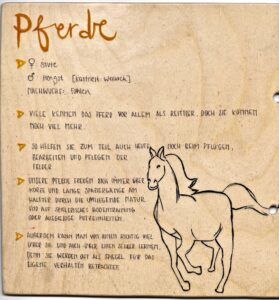 Pferde
♀ Stute
♂ Hengst [kastriert: Wallach]
Nachwuchs: Fohlen
Viele kennen das Pferd vor allem als Reittier, doch sie können
noch viel mehr.
So helfen sie zum Teil auch heute noch beim Pflügen,
Bearbeiten und Pflegen der
Felder
Unsere Pferde freuen sich immer über
kurze und lange Spaziergänge am
Halfter durch die umliegende Natur
und auf spielerisches Bodentraining
oder ausgiebige Putzeinheiten.
Außerdem kann man von ihnen richtig viel
über sie und auch über einen selber lernen,
denn sie werden oft als Spiegel für das
eigene Verhalten betrachtet